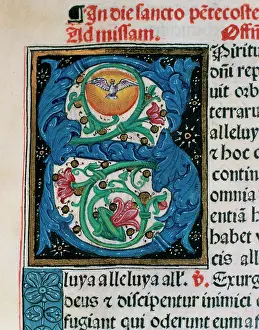 In die sancto pẽtecoste
Ad missam. Offm̃
Spiritu
dñi rep
uit orb
terraru
alleluy
⁊ hoc c
contin
omnia
entiã h
habet
cis all
luya alleluya all'. ℣. Exurg
deus ⁊ discipentur inimici e
fugiant qui oderunt eum a